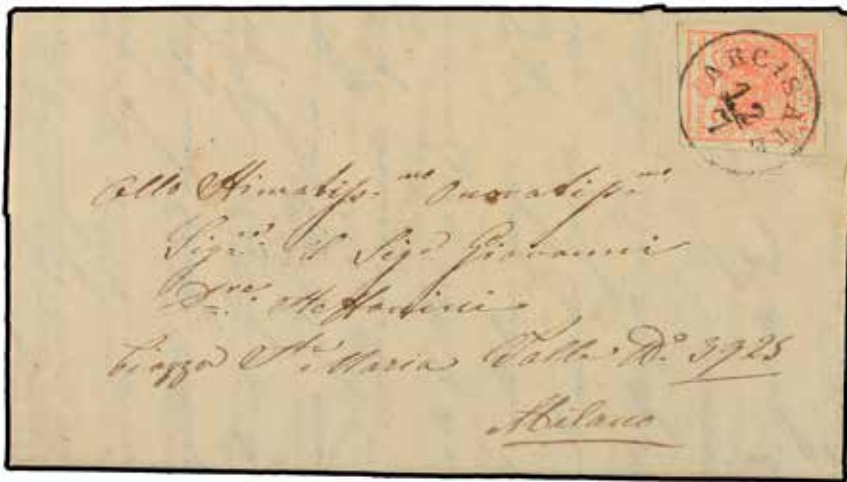 ARCISATE
12
7
Allo Stimatiss.mo Onoratiss.mo
Sigre. il Sigr Giovanni
Dre.
Piazza Sta Maria Valle No 3925
Milano